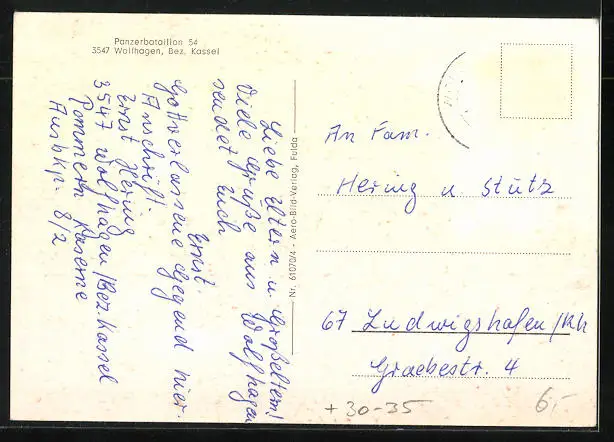 Panzerbataillon 54
3547 Wolfhagen, Bez. Kassel
Liebe Eltern u. Großeltern!
Viele Grüße aus Wolfhagen
sendet Euch
Ernst
Gottverlassene Gegend hier.
Anschrift:
Ernst Hering
3547 Wolfhagen/Bez. Kassel
Pommern Kaserne
Ausb.kp. 8/2
Nr. 61070/4 - Aero-Bild-Verlag, Fulda
An Fam.
Hering u. Stutz
67 Ludwigshafen/Rh
Graebestr. 4
+30-35
6,-